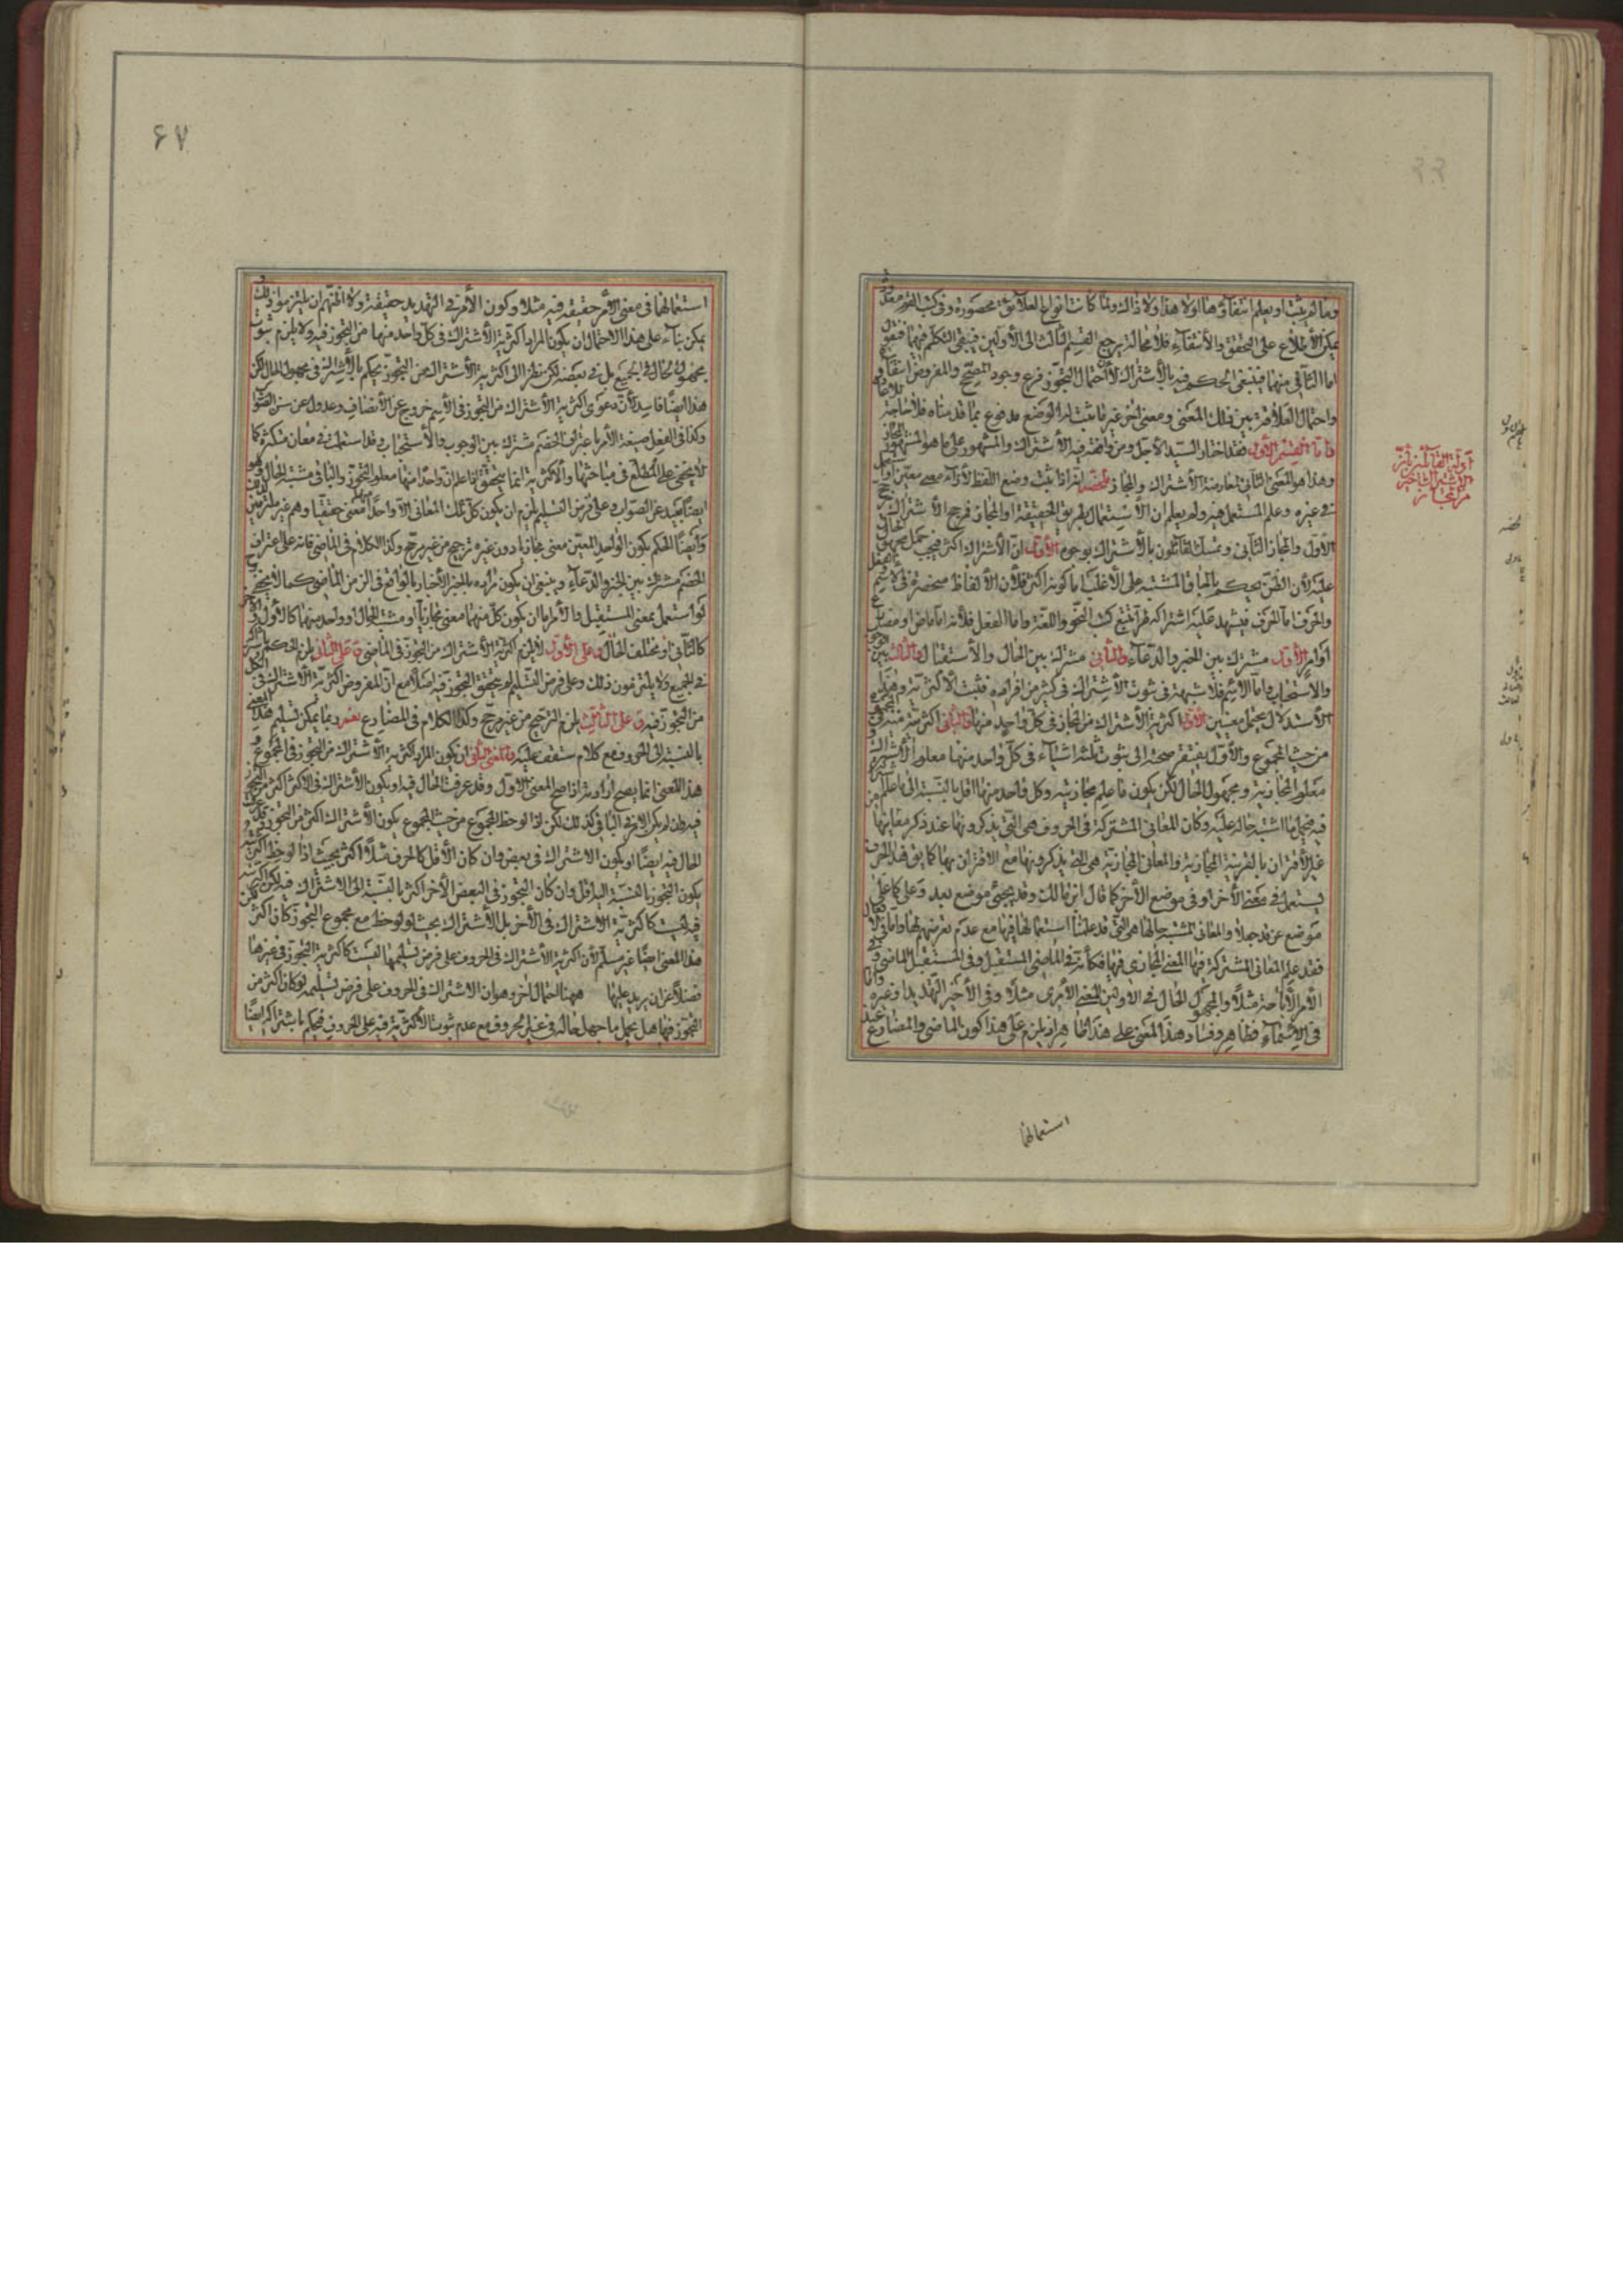 وما لم يثبت او يعلم انتفاؤها اولا هذا ولا ذاك ولما كانت انواع العلائق محصورة وفى كتب القوم معدودة
يمكن الاطلاع على التحقق والانتفاء فلا محالة يرجع القسم الثالث الى الاولين فينبغى التكلم فيهما فنقول
اما الثانى منهما فينبغى الحكم فيه بالاشتراك لان احتمال التجوز فرع وجود المصحح والمفروض انتفاؤه
واحتمال العلاقة بين ذلك المعنى ومعنى اخر غير ما ثبت له الوضع مدفوع بما قدمناه فلا حاجة
فاما القسم الاول فقد اختار السيد الاجل ومن وافقه فيه الاشتراك والمشهور على ما هو المشهور المجاز
وهذا هو المعنى الثانى لمعارضة الاشتراك والمجاز فتحصل انه اذا ثبت وضع اللفظ لازاء معنى معين واستعمل
فى غيره وعلم المستعمل فيه ولم يعلم ان الاستعمال بطريق الحقيقة او المجاز فرجح الاشتراك
الاول والمجاز الثانى وتمسك القائلون بالاشتراك بوجوه الاول ان الاشتراك اكثر فيجب حمل مجهول الحال
عليه لان الظن يحكم بالحاق المشتبه على الاغلب اما كونه اكثر فلان الالفاظ منحصرة فى الاسم والفعل
والحرف اما الحرف فيشهد عليه اشتراكه من تتبع كتب النحو واللغة واما الفعل فلانه اما ماض او مضارع
او امر الاول مشترك بين الخبر والدعاء والثانى مشترك بين الحال والاستقبال والثالث بين الوجوب
والاستحباب واما الاسم فلا شبهة فى ثبوت الاشتراك فى كثير من افراده فثبت الاكثرية وهذا
الاستدلال يحتمل معنيين الاول اكثرية الاشتراك من المجاز فى كل واحد منها والثانى اكثريته منه فى المجموع
من حيث المجموع والاول يفتقر صحته الى ثبوت ثلثة اشياء فى كل واحد منها معلوم الاشتراك
معلوم المجازية ومجهول الحال لكن يكون ما علم مجازيته وكل واحد منها اقل بالنسبة الى ما علم اشتراكه
فيه فيحمل ما اشتبه حاله عليه وكان المعانى المشتركة فى الحروف هى التى يذكرونها عند ذكر معانيها من
غير الاقتران بالقرينة المجازية والمعانى المجازية هى التى يذكرونها مع الاقتران بها كما يق هذا الحرف
يستعمل فى معنى الاخر او فى موضع الاخر كما قال ابن مالك وقد يجىء موضع بعد وعلى كما على
موضع عن قد جعلا والمعانى المشتبه حالها هى التى قد علمنا استعمالها فيها مع عدم تعرضهم لها واما فى الافعال
فقد علم المعانى المشتركة فيها المعنى المجازى فيها فكانه فى الماضى المستقبل وفى المستقبل الماضى وفى
الامر الاباحة مثلا والمجهول الحال فى الاولين المعنى الامرى مثلا وفى الاخير التهديد وغيره واما
فى الاسماء فظاهر وفساد هذا المعنى على هذا ظاهر اذ يلزم على هذا كون الماضى والمضارع عند
ادلة القائلين بان
الاشتراك خير
من المجاز
استعمالهما
۶۷
استعمالهما فى معنى الامر حقيقة فيه مثلا وكون الامر فى التهديد حقيقة ولا اظنهم ان يلتزموا ذلك
يمكن بناء على هذا الاحتمال ان يكون المراد اكثرية الاشتراك فى كل واحد منها من التجوز فيه ولا يلزم ثبوت
مجهول الحال فى الجميع بل فى بعضه لكن نظرا الى اكثرية الاشتراك من التجوز يحكم بالاشتراك فى مجهول الحال لكن
هذا ايضا فاسد لان دعوى اكثرية الاشتراك من التجوز فى الاسم خروج عن الانصاف وعدول عن سنن الصواب
وكذا فى الفعل صيغة الامر باعتراف الخصم مشترك بين الوجوب والاستحباب وقد استعملت فى معان متكثرة كما
لا يخفى على المطلع فى مباحثها والاكثرية انما يتحقق اذا علم ان واحدا منها معلوم التجوز والباقى مشتبه الحال وهو
ايضا بعيد عن الصواب وعلى فرض التسليم يلزم ان يكون كل تلك المعانى الا واحدا معنى حقيقيا وهم غير ملتزمين
وايضا الحكم بكون الواحد المعين معنى مجازيا دون غيره ترجيح من غير مرجح وكذا الكلام فى الماضى فانه على اعتراف
الخصم مشترك بين الخبر والدعاء وينبغى ان يكون مراده بالخبر الاخبار بالواقع فى الزمن الماضى كما لا يخفى
لو استعمل بمعنى المستقبل والامر اما ان يكون كل منهما معنى مجازيا او مشتبه الحال او واحد منهما كالاول والاخر
كالثانى او مختلف الحال وعلى الاول لا يلزم اكثرية الاشتراك من التجوز فى الماضى وعلى الثانى يلزم الحكم باشتراك الكل
فى الجميع ولا يلتزمون ذلك وعلى فرض التسليم لم يتحقق التجوز فيه اصلا مع ان المفروض اكثرية الاشتراك فى
من التجوز فيه وعلى الثالث يلزم الترجيح من غير مرجح وكذا الكلام فى المضارع نعم ربما يمكن تسليم هذا المعنى
بالنسبة الى الحروف مع كلام ستقف عليه والمعنى الثانى ان يكون المراد اكثرية الاشتراك من التجوز فى المجموع و
هذا المعنى انما يصح ارادته اذا صح المعنى الاول وقد عرفت الحال فيه او يكون الاشتراك فى الاكثر اكثر من التجوز
فيه وان لم يكن الامر فى الباقى كذلك لكن اذا لوحظ المجموع من حيث المجموع يكون الاشتراك اكثر من التجوز
الحال فيه ايضا او يكون الاشتراك فى بعض وان كان الاقل كالحرف مثلا اكثر بحيث اذا لوحظ
يكون التجوز بالنسبة اليه اقل وان كان التجوز فى البعض الاخر اكثر بالنسبة الى الاشتراك فيه لكن
فيه ليست كاكثرية الاشتراك فى الاخر بل الاشتراك بحيث لو لوحظ مع مجموع التجوز كان اكثر
هذا المعنى ايضا غير مسلم لان اكثرية الاشتراك فى الحروف على فرض تسليمها ليست كاكثرية التجوز فى غيرها
فضلا عن ان يزيد عليها فههنا احتمال اخر وهو ان الاشتراك فى الحروف على فرض تسليمه لو كان اكثر من
التجوز فيها هل يحمل ما جهل حاله فى غير الحروف مع عدم ثبوت الاكثرية فيه على الحروف فيحكم باشتراكه ايضا